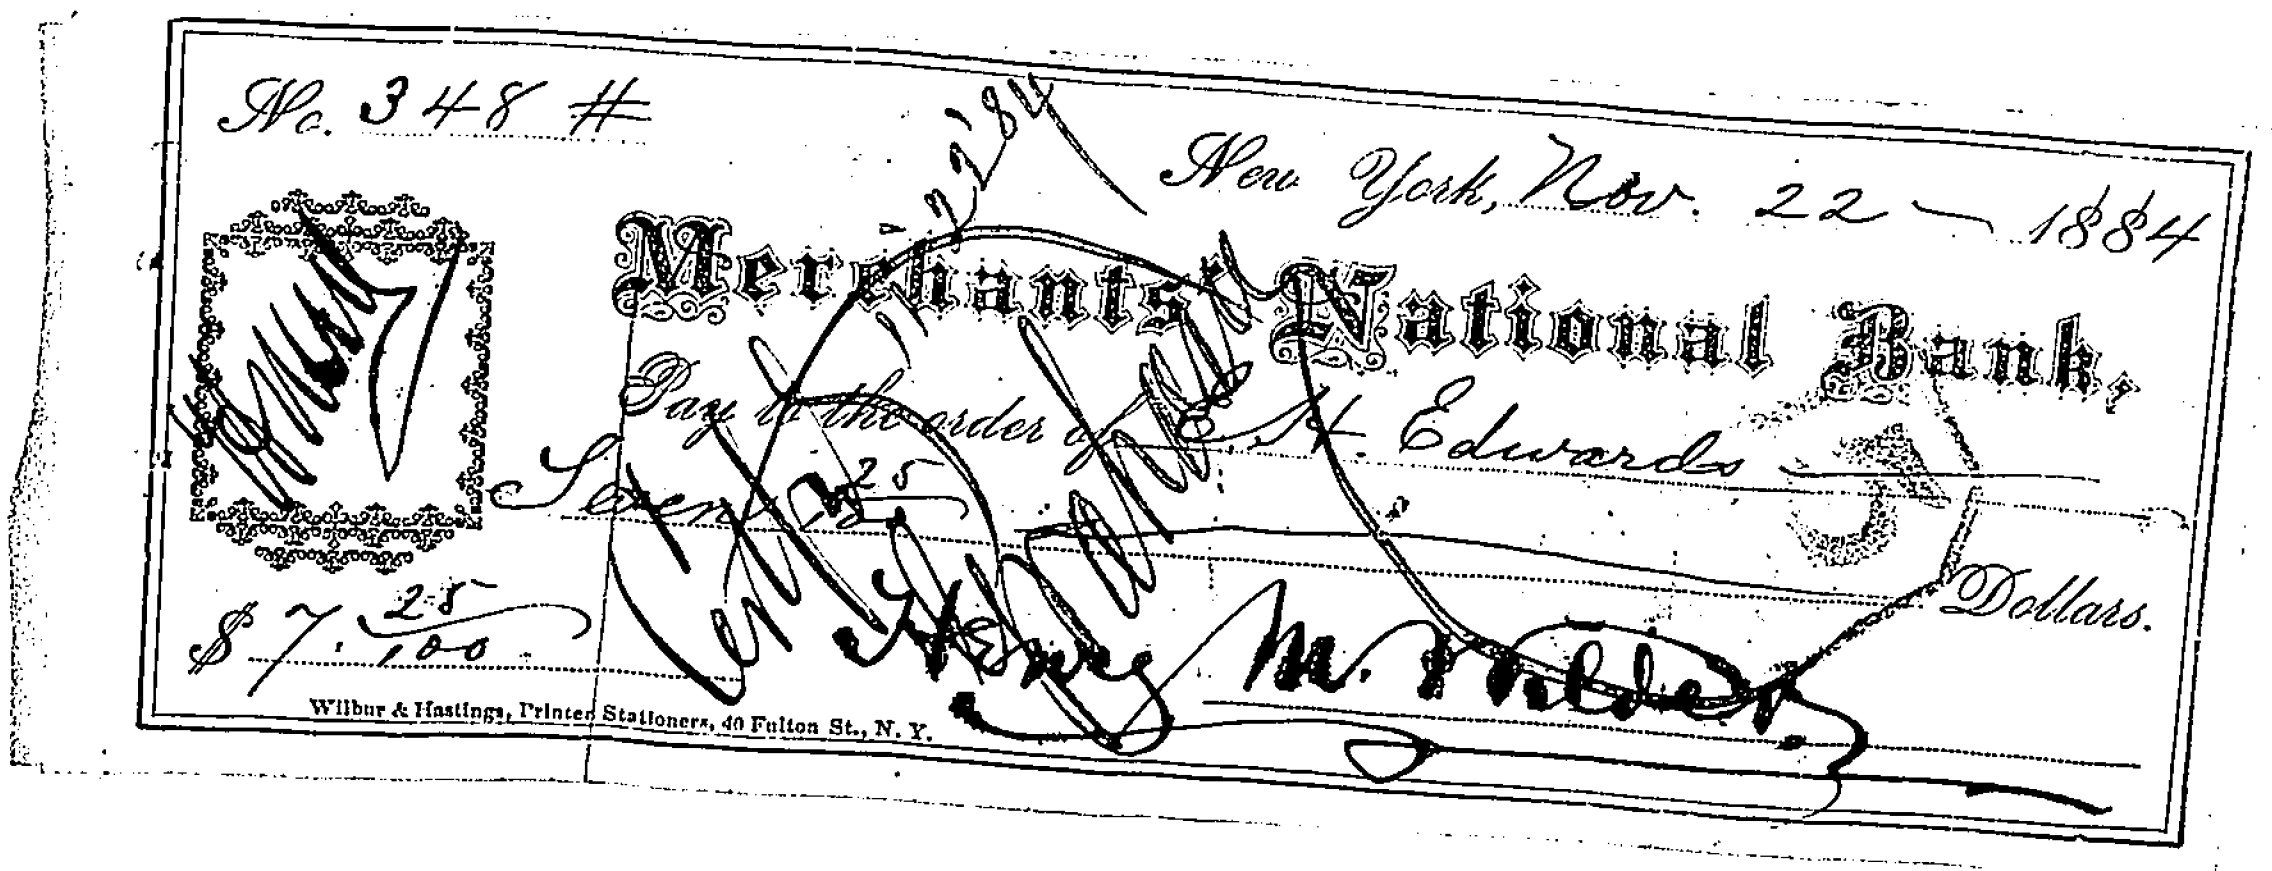 No. 348 #
New York, Nov. 22 1884
Merchants National Bank,
Pay to the order of St. Edwards
Seven 25
Dollars.
$ 7. 25/100
Henry M.
Wilbur & Hastings, Printer Stationers, 40 Fulton St., N. Y.